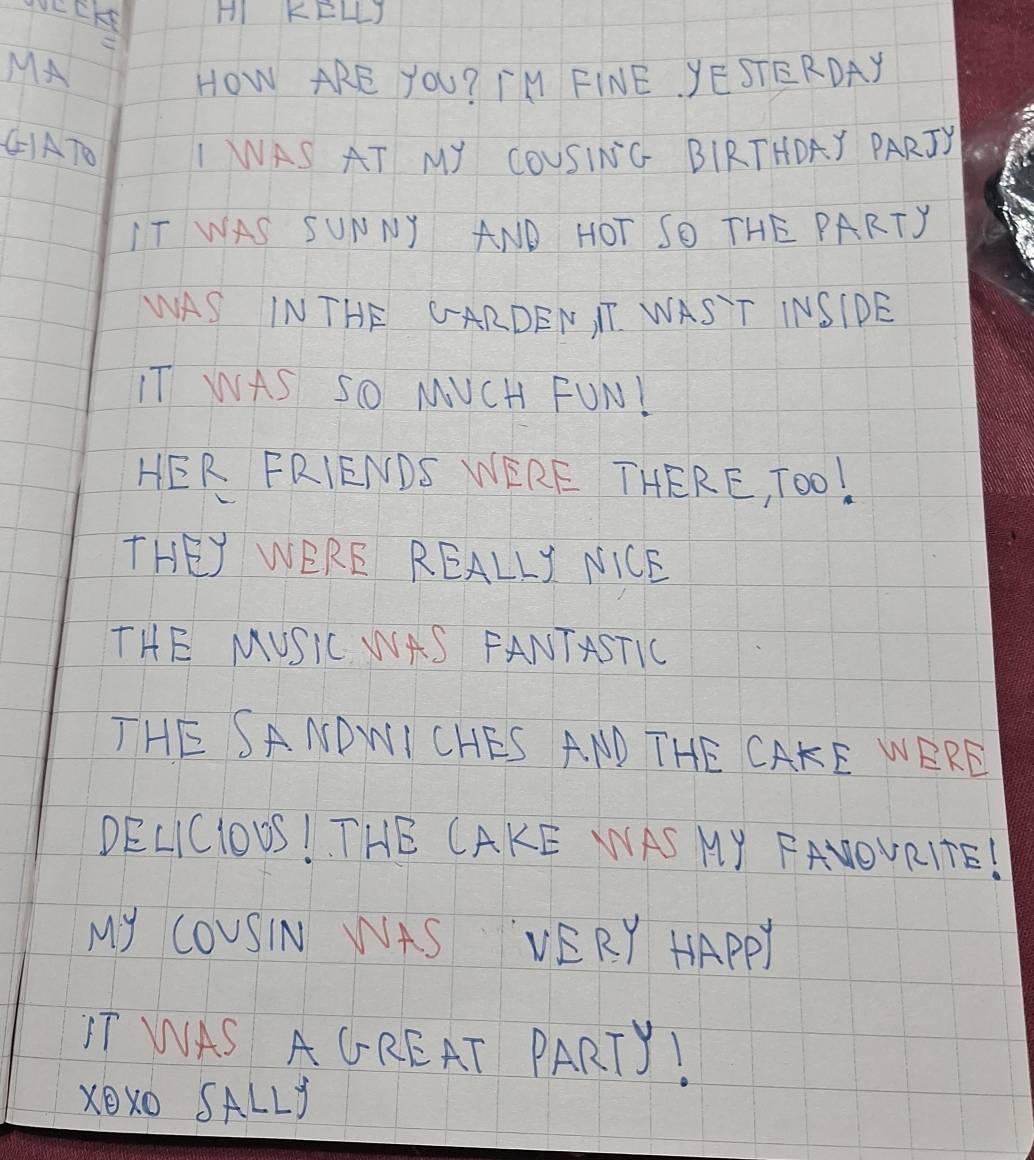 HI KELLY
MA
HOW ARE YOU? I'M FINE. YESTERDAY
GIATO
I WAS AT MY COUSING BIRTHDAY PARTY
IT WAS SUNNY AND HOT SO THE PARTY
WAS IN THE GARDEN, IT WAS'T INSIDE
IT WAS SO MUCH FUN!
HER FRIENDS WERE THERE, TOO!
THEY WERE REALLY NICE
THE MUSIC WAS FANTASTIC
THE SANDWICHES AND THE CAKE WERE
DELICIOUS! THE CAKE WAS MY FAVOURITE!
MY COUSIN WAS VERY HAPPY
IT WAS A GREAT PARTY!
XOXO SALLY